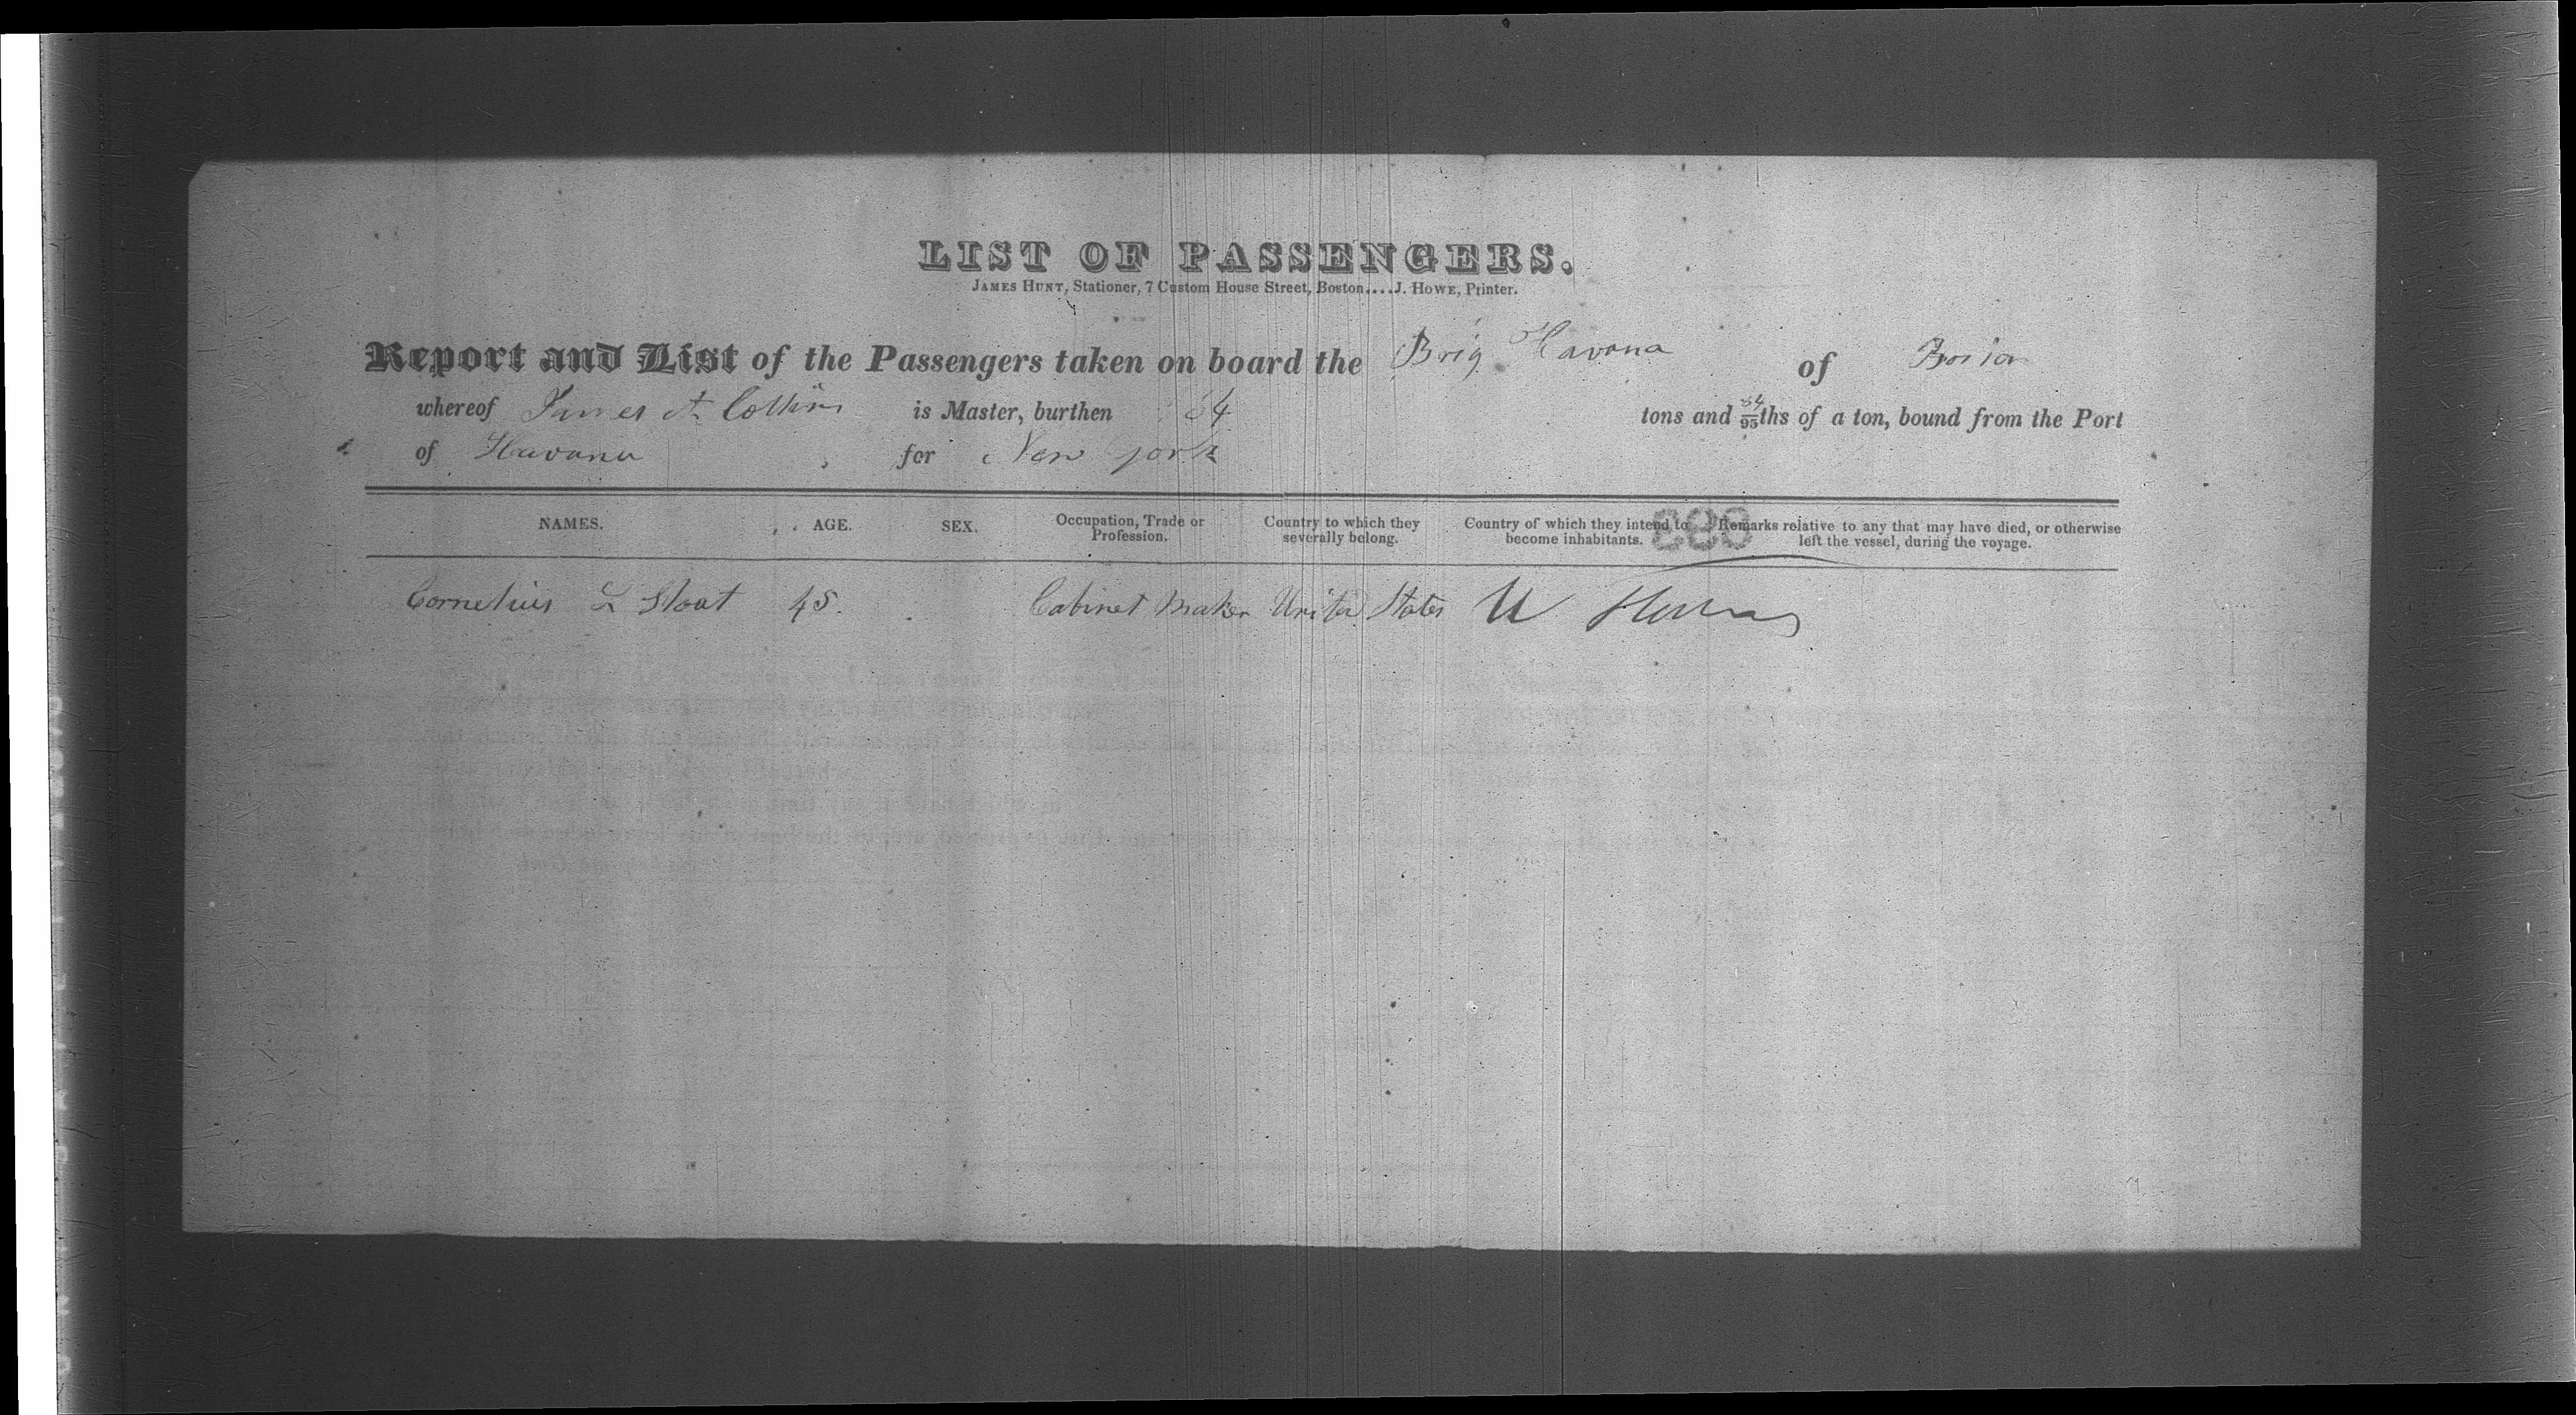 LIST OF PASSENGERS.
JAMES HUNT, Stationer, 7 Custom House Street, Boston....J. HOWE, Printer.
Report and List of the Passengers taken on board the Brig Havana of Boston
whereof James A Collins is Master, burthen 54 tons and 54/95ths of a ton, bound from the Port
of Havana for New york
NAMES. AGE. SEX. Occupation, Trade or Profession. Country to which they severally belong. Country of which they intend to become inhabitants. Remarks relative to any that may have died, or otherwise left the vessel, during the voyage.
Cornelius L Sloat 45. Cabinet Maker United States U States